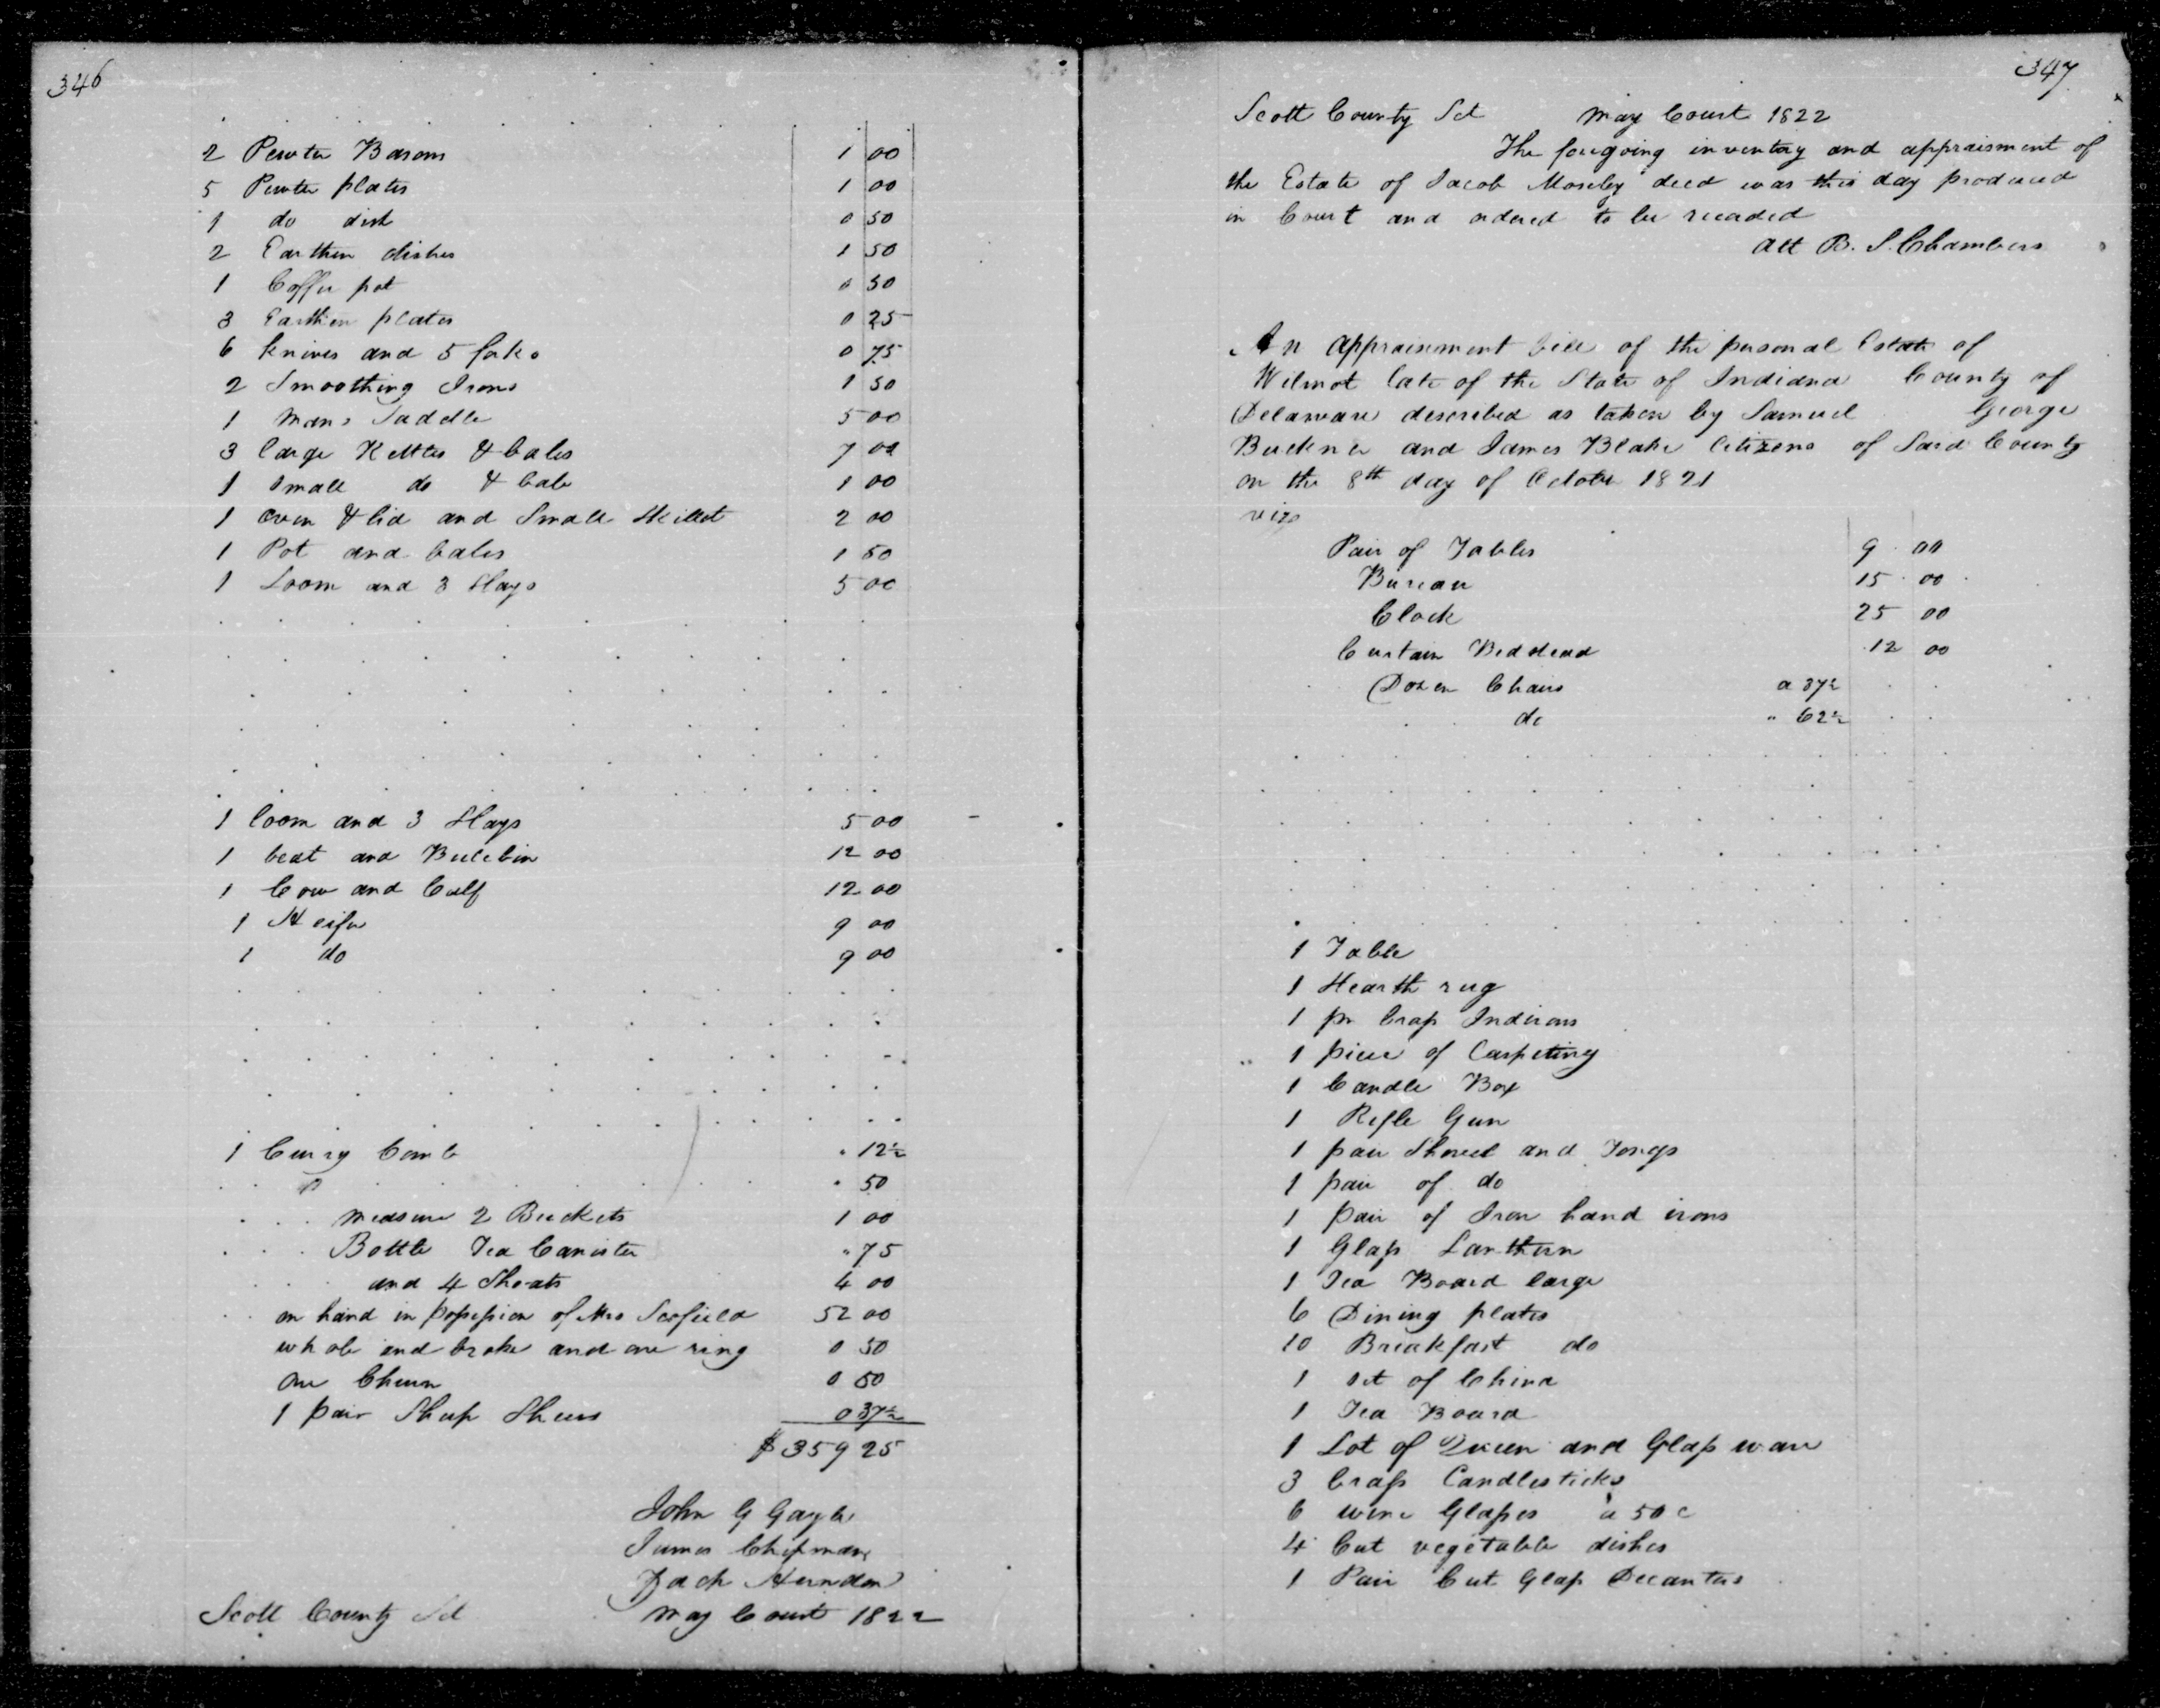 346
2 Pewter Basons 1 00
5 Pewter plates 1 00
1 do dish 0 50
2 Earthen dishes 1 50
1 Coffee pot 0 50
3 Earthen plates 0 25
6 knives and 5 forks 0 75
2 Smoothing Irons 1 50
1 mans Saddle 5 00
3 large Kettles & bales 7 00
1 small do & bale 1 00
1 oven & lid and Small Skillet 2 00
1 Pot and bales 1 50
1 Loom and 3 Slays 5 00
1 loom and 3 Slays 5 00
1 beat and 12 00
1 Cow and Calf 12 00
1 Heifer 9 00
1 do 9 00
1 Curry Comb " 12½
" 50
measure 2 Buckets 1 00
Bottle Tea Canister " 75
and 4 Shoats 4 00
on hand in possession of Mrs Scofield 52 00
whole and broke and one ring 0 50
One Churn 0 50
1 pair Sheep Shears 0 37½
$359 25
John G Gayle
James Chipman
Zach Herndon
Scott County Sct May Court 1822
347
Scott County Sct May Court 1822
The foregoing inventory and appraisment of
the Estate of Jacob Moseley decd was this day produced
in Court and ordered to be recorded
Att B. S. Chambers
An appraisement bill of the personal Estate of
Wilmot late of the State of Indiana County of
Delaware described as taken by Samuel George
Buckner and James Blake Citizens of Said County
on the 8th day of October 1821
viz
Pair of Tables 9 00
Bureau 15 00
Clock 25 00
Curtain Bedstead 12 00
Dozen Chairs a 37½
do " 62½
1 Table
1 Hearth rug
1 pr brass Indirons
1 piece of Carpeting
1 Candle Box
1 Rifle Gun
1 pair Shovel and Tongs
1 pair of do
1 pair of Iron hand irons
1 Glass Lanthern
1 Tea Board large
6 Dining plates
10 Breakfast do
1 set of China
1 Tea Board
1 Lot of Queen and Glass ware
3 brass Candlesticks
6 wine Glasses a 50 c
4 Cut vegetable dishes
1 Pair Cut Glass Decanters